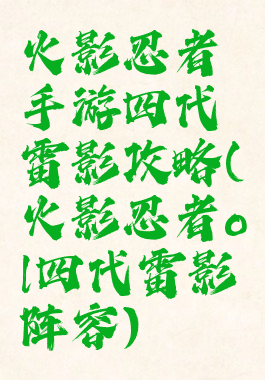 火影忍者
手游四代
雷影攻略(
火影忍者。
l四代雷影
阵容)